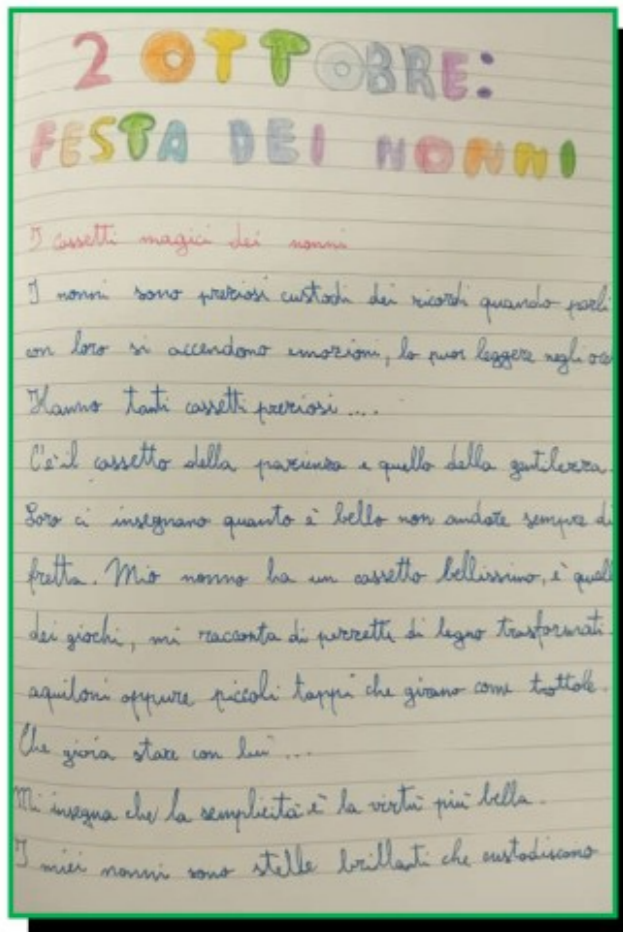 2 OTTOBRE:
FESTA DEI NONNI
I cassetti magici dei nonni
I nonni sono preziosi custodi dei ricordi quando parli
con loro si accendono emozioni, lo puoi leggere negli occ
Hanno tanti cassetti preziosi ....
C'è il cassetto della pazienza e quello della gentilezza.
Loro ci insegnano quanto è bello non andare sempre di
fretta. Mio nonno ha un cassetto bellissimo, è quell
dei giochi, mi racconta di pezzetti di legno trasformati
aquiloni oppure piccoli tappi che girano come trottole.
Che gioia stare con lui ...
Mi insegna che la semplicità è la virtù più bella.
I miei nonni sono stelle brillanti che custodiscono